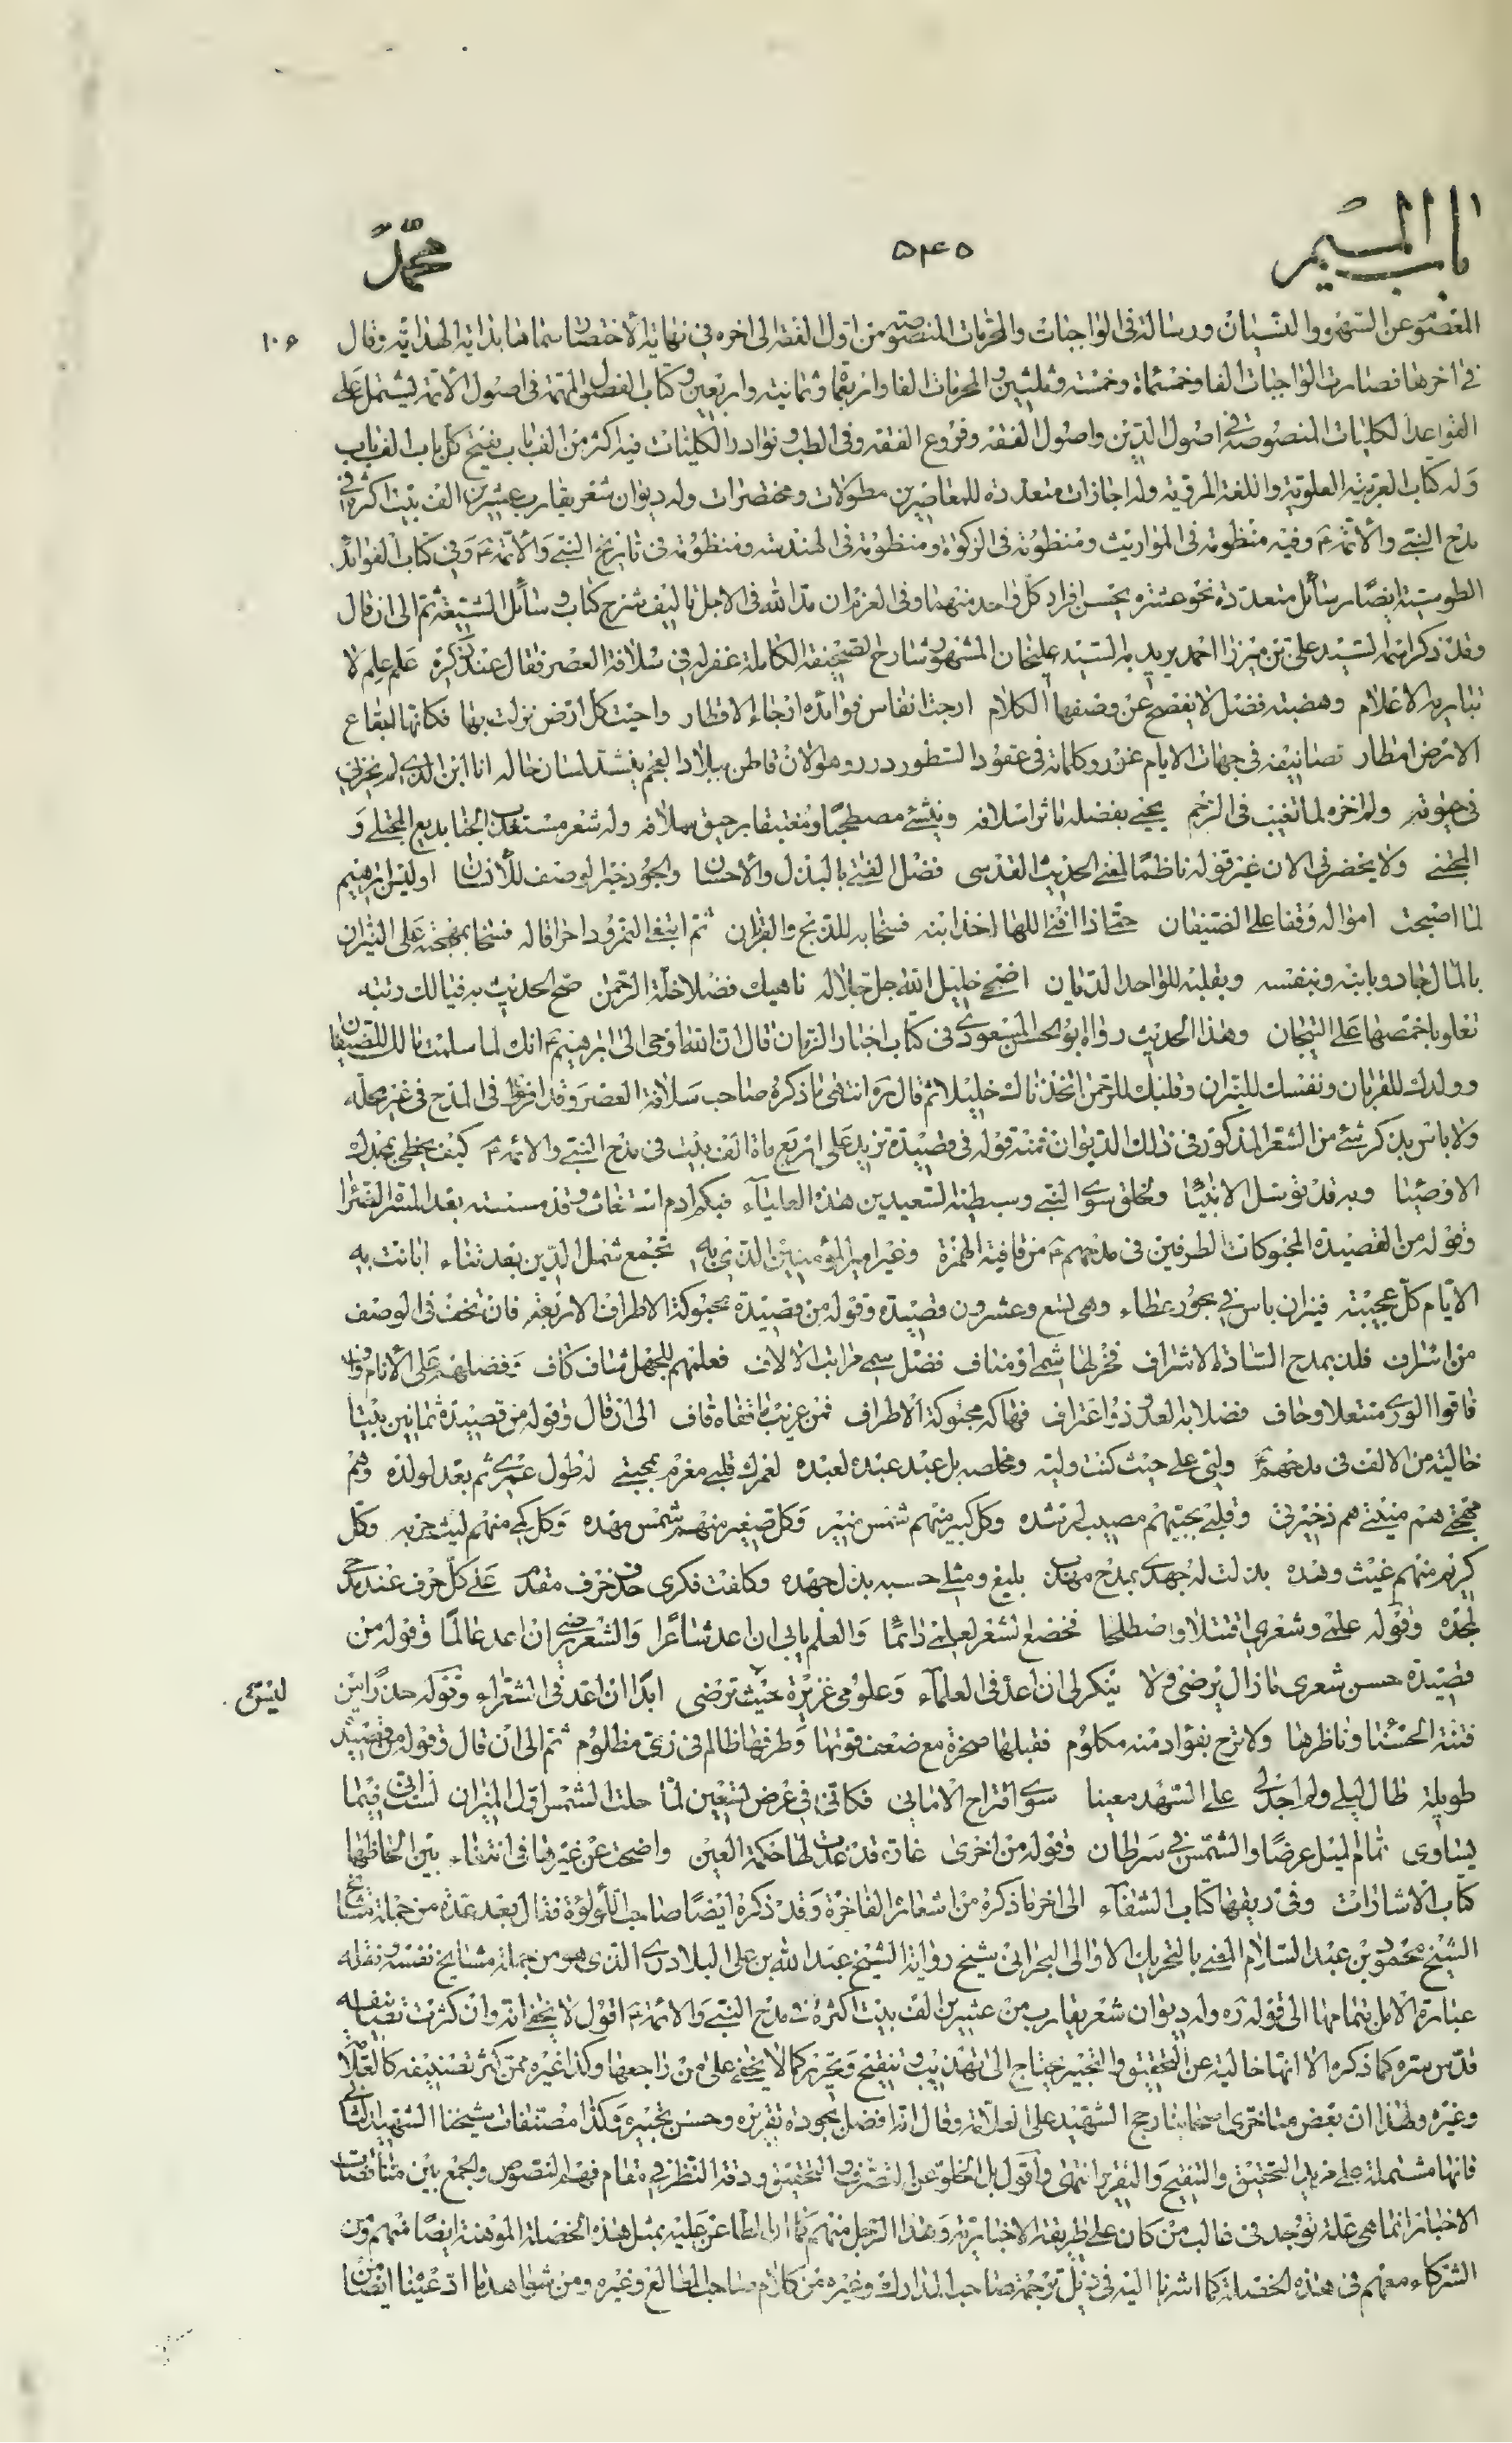 باب الميم
٥۴٥
محمد
المعصوم عن السهو والنسيان ورسالة فى الواجبات والمحرمات المنصوصة من اول الفقه الى اخره فى نهاية الأختصار سماها بداية الهداية وقال
١٠۶
فى اخرها فصارت الواجبات الفا وخمسمائة وخمسة وثلثين والمحرمات الفا واربعمائة وثمانية واربعين وكتاب الفصول المهمة فى اصول الأئمة يشتمل على
القواعد الكليات المنصوصة فى اصول الدين واصول الفقه وفروع الفقه وفى الطب ونوادر الكليات فيه اكثر من الف باب يفتح كل باب الف باب
وله كتاب العربية العلوية واللغة المروية وله اجازات متعددة للمعاصرين مطولات ومختصرات وله ديوان شعر يقارب عشرين الف بيت اكثره فى
مدح النبى والأئمة ع وفيه منظومة فى المواريث ومنظومة فى الزكوة ومنظومة فى الهندسة ومنظومة فى تاريخ النبى والأئمة ع وفى كتاب الفوائد
الطوسية ايضا رسائل متعددة نحو عشرة يحسن افراد كل واحد منهما وفى العزم ان مد الله فى الاجل تاليف شرح كتاب وسائل الشيعة ثم الى ان قال
وقد ذكر اسمه السيد على بن ميرزا احمد يريد به السيد عليخان المشهور شارح الصحيفة الكاملة غفر له فى سلافة العصر فقال عند ذكره علم علم لا
تباريه الاعلام وهضبة فضل لا يفصح عن وصفها الكلام ارجت انفاس فوائده ارجاء الاقطار واحيت كل ارض نزلت بها فكانها لبقاع
الارض امطار تصانيفه فى جبهات الايام غرر وكلماته فى عقود السطور درر وهو الان قاطن ببلاد العجم ينشد لسان حاله انا ابن الذى لم يخزنى
فى حيوته ولم اخزه لما تغيب فى الرجم يحيى بفضله ماثر اسلافه وينتشى مصطحبا ومغتبقا برحيق سلافه وله شعر مستعذب الجنا بديع المجتلى و
المجتنى ولا يحضرنى الان غير قوله ناظما لمعنى الحديث القدسى فضل الفتى بالبذل والاحسان والجود خير الوصف للأنسان اوليس ابرهيم
لما اصبحت امواله وقفا على الضيفان حتى اذا افنى اللها اخذ ابنه فسخا به للذبح والقربان ثم ابتغى النمرود احراقا له فسخا بمهجته على النيران
بالمال جاد وبابنه وبنفسه وبقلبه للواحد الديان اضحى خليل الله جل جلاله ناهيك فضلا خلة الرحمن صح الحديث به فيا لك رتبة
تعلو باخمصها على التيجان وهذا الحديث رواه ابو الحسن المسعودى فى كتاب اخبار الزمان قال ان الله اوحى الى ابرهيم ع انك لما سلمت مالك للضيفان
وولدك للقربان ونفسك للنيران وقلبك للرحمن اتخذناك خليلا ثم قال ره انتهى ما ذكره صاحب سلافة العصر وقد افرط فى المدح فى غير محله
ولا باس بذكر شئ من الشعر المذكور فى ذلك الديوان فمنه قوله فى قصيدة تزيد على اربع مائة الف بيت فى مدح النبى والائمة ع كيف يحظى بمجدك
الاوصيا وبه قد توسل الانبيا ولخلق سوى النبى وسبطيه السعيدين هذه العلياء فبكم ادم استغاث وقد مسته بعد المسرة الضراء
وقوله من القصيدة المحبوكات الطرفين فى مدحهم ع من قافية الهمزة وغير امير المؤمنين الذى به تجمع شمل الدين بعد ثناء ابانت به
الايام كل عجيبة فنيران باس فى بحور عطاء وهى تسع وعشرون قصيدة وقوله من قصيدة محبوكة الاطراف الاربعة فان تخف فى الوصف
من اسراف فلذ بمدح السادة الاشراف فخر لهاشمى او مناف فضل سمى مراتب الالاف فعلمهم للجهل شاف كاف وفضلهم على الأنام واف
فاقوا الورى منتعلا وحاف فضلا به العدو ذو اعتراف فهاكه محبوكة الاطراف فمن غريب ما قفاه قاف الى ان قال وقوله من قصيدة ثمانين بيتا
خالية من الالف فى مدحهم ع وليى على حيث كنت وليه ومخلصه بل عبد عبده لعبده لعمرك قلبى مغرم بمحبتى له طول عمرى ثم بعد لولده وهم
مهجتى هم منيتى هم ذخيرتى وقلبى بحبهم مصيب لرشده وكل كبير منهم شمس منير وكل صغير منهم شمس مهده وكل كمى منهم ليث حربه وكل
كريم منهم غيث وهده بذلت له جهدى بمدح مهذب بليغ ومثلى حسبه بذل جهده وكلفت فكرى حذف حرف مقدم على كل حرف عند مدحى
لمجده وقوله علمى وشعرى اقتتلا واصطلحا فخضع الشعر لعلمى دائما والعلم يابى ان اعد شاعرا والشعر يرضى ان اعد عالما وقوله من
قصيدة حسن شعرى ما زال يرضى ولا ينكر لى ان اعد فى العلماء وعلومى غزيرة حيث ترضى ابدا ان اعد فى الشعراء وقوله حذرا من
ليس
فتنة الحسنا وناظرها ولا ترح بفؤاد منه مكلوم فقبلها صخرة مع ضعف قوتها وطرفها ظالم فى زى مظلوم ثم الى ان قال وقوله من قصيدة
طويلة طال ليلى ولم اجد لى على السهد معينا سوى اقتراح الامانى فكانى فى عرض تسعين لما حلت الشمس اول الميزان لست انى فيما
يساوى تمام الميل عرضا والشمس فى سرطان وقوله من اخرى غادة قد غدت لها حكمة العين واضحت عن غيرها فى انتفاء بين الحاظها
كتاب الاشارات وفى ريقها كتاب الشفاء الى اخر ما ذكره من اشعاره الفاخرة وقد ذكره ايضا صاحب اللؤلؤة فقال بعد عده من جملة مشايخ
الشيخ محمود بن عبد السلام المعنى بالتحريك الاوالى البحرانى شيخ رواية الشيخ عبد الله بن على البلادى الذى هو من جملة مشايخ نفسه ونقله
عبارة الأمل بتمامها الى قوله ره وله ديوان شعر يقارب من عشرين الف بيت اكثره فى مدح النبى والائمة ع اقول لا يخفى انه وان كثرت تصانيفه
قدس سره كما ذكره الا انها خالية عن التحقيق والتحبير يحتاج الى تهذيب وتنقيح وتحرير كما لا يخفى على من راجعها وكذا غيره ممن كثر تصنيفه كالعلامة
وغيره ولهذا ان بعض متاخرى اصحابنا رجح الشهيد على العلامة وقال انه افضل بجودة تقريره وحسن تحبيره وكذا مصنفات شيخنا الشهيد الثانى
فانها مشتملة على مزيد التحقيق والتنقيح والتقرير انتهى واقول بل الخلو عن التصرف والتحقيق ودقة النظر فى مقام فهم النصوص والجمع بين متناقضات
الاخبار انما هى علة توجد فى غالب من كان على طريقة الاخبارية وهذا الرجل منهم الطاعن عليه بمثل هذه الخصلة الموهنة ايضا منهم ومن
الشركاء معهم فى هذه الخصلة كما اشرنا اليه فى ذيل ترجمة صاحب المدارك وغيره من كلام صاحب المطالع وغيره ومن شواهد ما ادعينا ايضا من